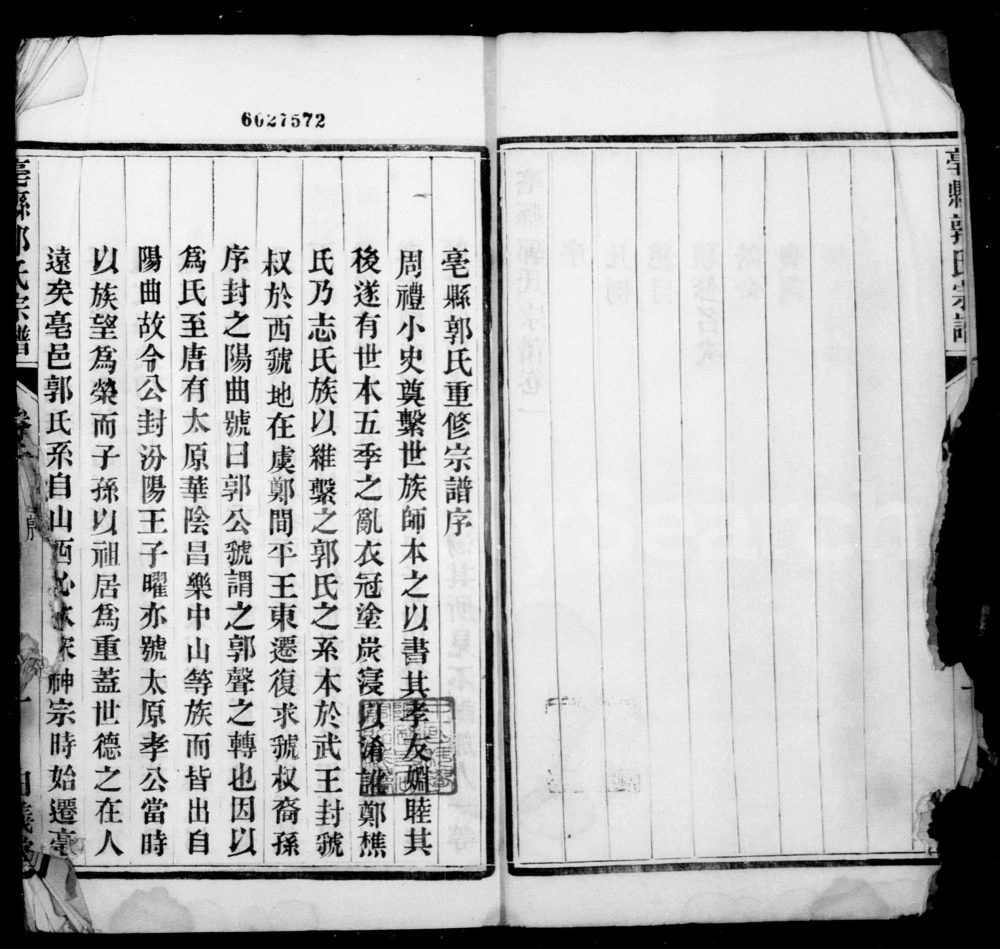 6627572
亳縣郭氏宗譜
亳縣郭氏重修宗譜序
周禮小史奠繫世族師本之以書其孝友婣睦其
後遂有世本五季之亂衣冠塗炭寖以淆訛鄭樵
氏乃志氏族以維繫之郭氏之系本於武王封虢
叔於西虢地在虞鄭間平王東遷復求虢叔裔孫
序封之陽曲號曰郭公虢謂之郭聲之轉也因以
爲氏至唐有太原華陰昌樂中山等族而皆出自
陽曲故令公封汾陽王子曜亦號太原孝公當時
以族望爲榮而子孫以祖居爲重蓋世德之在人
遠矣亳邑郭氏系自山西 神宗時始遷亳
亳縣郭氏宗譜